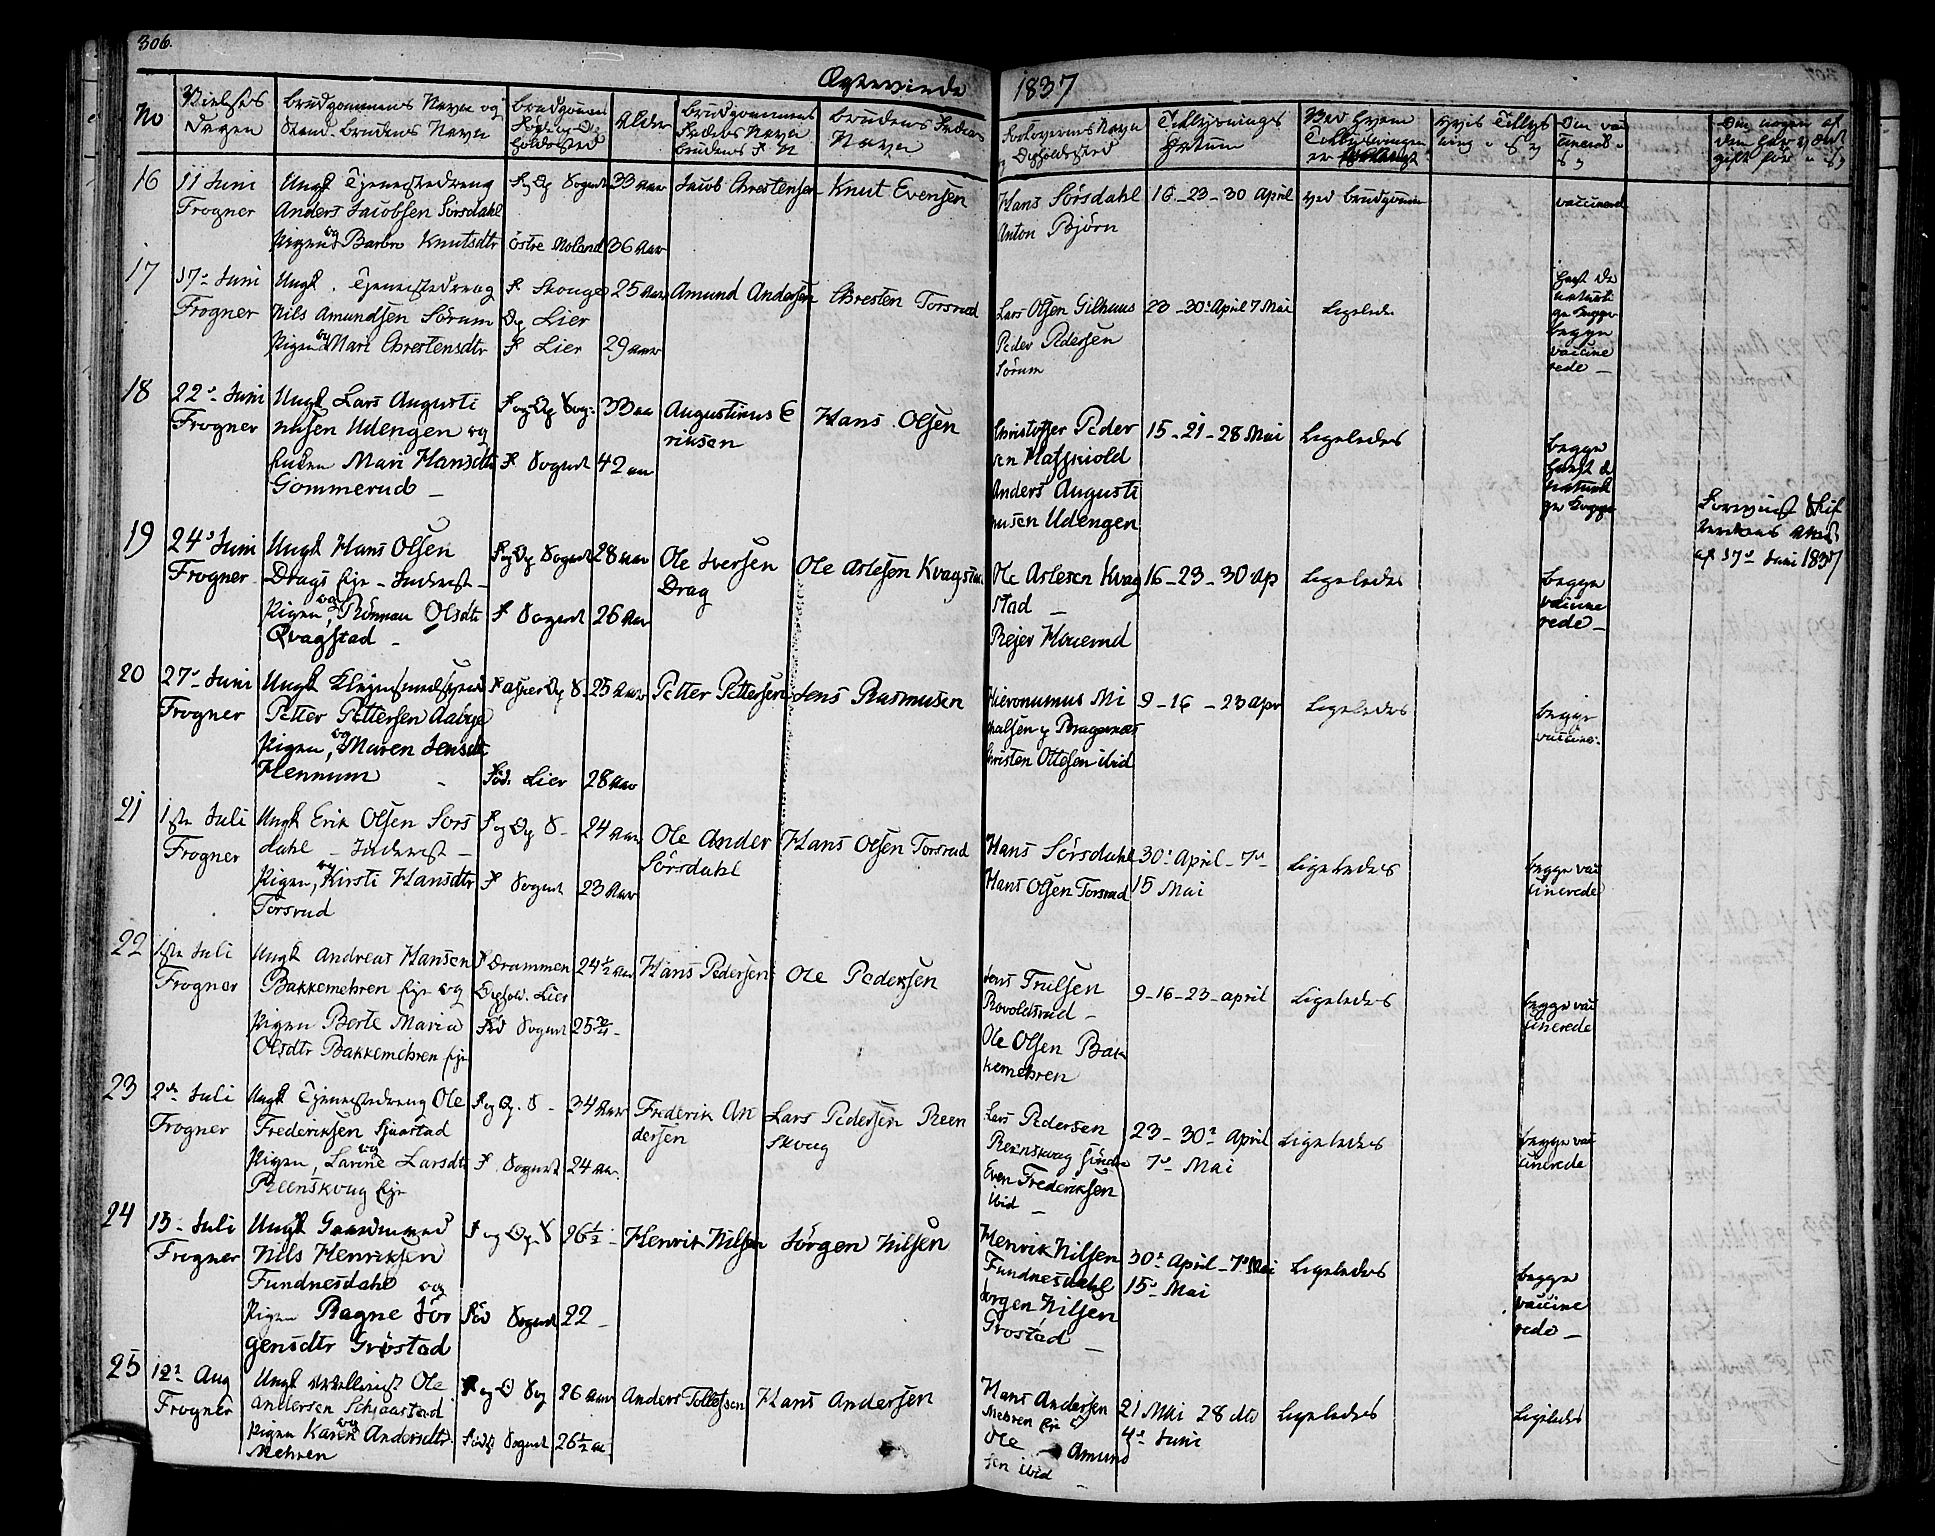 306.
Ægteviede 1837
No
Vielses Dagen
Brudgommens Navn og Stand. Brudens Navn
Brudgommens Føde og Opholdssted
Alder
Brudgommens Faders Navn Brudens F. N
Brudens Faders Navn
Forlovernes Navn og Opholdssted
Tillysnings Datum
Ved Hvem Tillysningen er forlangt
Hvis Tillysning
16 11 Juni Frogner
Ungk Tjenestedreng
Anders Jacobsen Sørsdahl
og Pigen Barbro Knutsdtr
F og Op Sognet 33 Aar
østre Moland 36 Aar
Jacob Chrestensen
Knut Evensen
Hans Sørsdahl
Anton Bjørn
16 - 23 - 30 April
ved Brudgommen
vaccinered
17 17de Juni Frogner
Ungk. Tjenestedreng
Nils Amundsen Sørum
og Pigen Mari Chrestensdtr
F Skouge 25 Aar
Op Lier
F Lier 29 Aar
Amund Andersen
Chresten Torsrud
Lars Olsen Gilhuus
Peder Pedersen
Sørum
23 - 30te April 7 Mai
Ligelede
begge
vaccine
rede -
18 22de Juni Frogner
Ungk Lars Augusti
nusen Udengen og
Enken Mari Hansdtr
Gommerud -
F og Op Sog. 33 aa
F Sognet 42 aa
Augustinus E
riksen
Hans Olsen
Christoffer Peder
sen Matskiold
Anders Augusti
nusen Udengen
15 - 21 - 28 Mai
Ligeledes
begge
havt de
naturli
ge Kopper
Forevist Skif
terettens Attest
af 17de Juni 1837
19 24de Juni Frogner
Ungk Hans Olsen
Drags Eje - Inderst -
og Pigen, Rønnau Olsdtr
Qvagstad -
F og Op Sognet 28 Aar
F Sognet 26 Aar
Ole Iversen
Drag
Ole Aslesen Kvagstad
Ole Aslesen Kvag
stad -
Rejer Houerud
16 - 23 - 30 Ap
Ligeledes
begge
vaccine
rede -
20 27de Juni Frogner
Petter Pettersen Aabye
og Pigen, Maren Jensdtr
Hennum -
25 Aar
Fød. Lier 28 Aar
Petter Pettersen
Jens Rasmusen
Hieronumus Mi
halsen p Bragernæs
Christen Ottesen ibid
9 - 16 - 23 Apr
Ligeledes
begge
vaccine.
21 1ste Juli Frogner
Ungk Erik Olsen Sørs
dahl - Inderst -
og Pigen, Kirsti Hansdtr
Torsrud
F og Op S - 24 Aar
F Sognet 23 Aar
Ole Ander
Sørsdahl
Hans Olsen Torsrud
Hans Sørsdahl
Hans Olsen Torsrud
30te April - 7de
15 Mai
Ligeledes
begge vac
cinerede
22 1ste Juli Frogner
Ungk Andreas Hansen
Bakkemehren Eje og
Pigen Berte Maria
Olsdtr Bakkemehren Eje
F Drammen 24½ Aar
Ophold. Lier
Fød Sognet 25
Hans Pedersen
Ole Pedersen
Jens Trulsen
Rovoldsrud -
Ole Olsen Bak
kemehren
9 - 16 - 23 - april
Ligeledes
begge vac
cinerede
23 2den Juli Frogner
Ungk Tjenestedreng Ole
Frederiksen Sjaastad
og Pigen, Larine Larsdtr
Reenskoug Eje
F og Op. S - 34 Aar
F. Sognet 24 Aar
Frederik An
dersen
Lars Pedersen Reen
Skoug
Lars Pedersen
Reenskoug
Even Frederiksen
ibid -
23 - 30te April
7de Mai
Ligeledes
begge vac
cinerede
24 13 - Juli Frogner
Ungk Gaardmand
Nils Henriksen
Fundnesdahl og
Pigen Ragne Jør
gensdtr Grøstad
F og Op. S 26½ -
Fød Sognet 22 -
Henrik Nilsen
Jørgen Nilsen
Henrik Nilsen
Fundnesdahl
Jørgen Nilsen
Grøstad -
30te April - 7de Mai
15de Mai
Ligeledes
begge
vaccine
rede -
25 12te Aug Frogner
Ole
Andersen Schjaastad
og Pigen Karen Andersdtr
Mehren
F og O Sog 26 Aar
Født Sognet 26½ Aa
Anders Tollefsen
Hans Andersen
Hans Andersen
Mehren Eje
Ole Amund
sen ibid
21 Mai 28 do
4de Juni
Ligeledes
Ligeledes